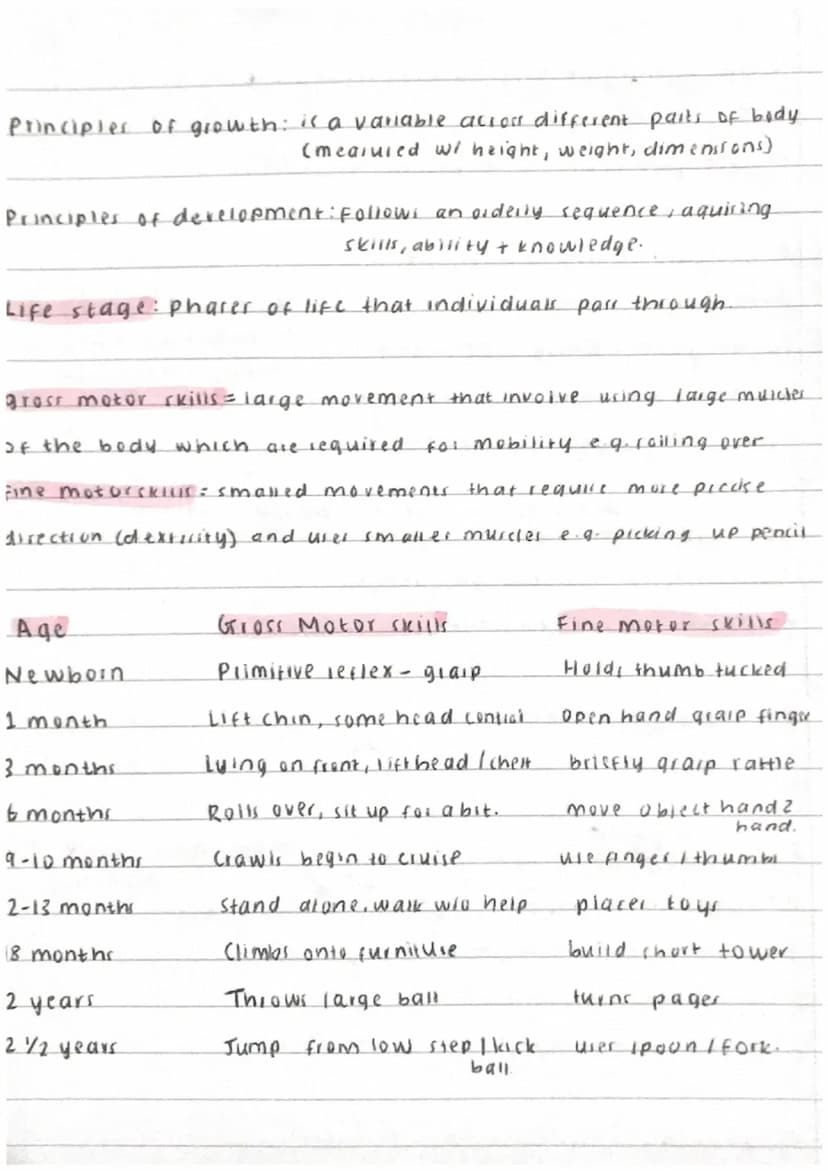 Principles of growth: is a variable across different parts of body
(measured w/ height, weight, dimensions)
Principles of development: Follows an orderly sequence, aquiring
skills, ability + knowledge.
Life stage: phases of life that individuals pass through.
gross motor skills = large movement that involve using large muscles
of the body which are required for mobility e.g. rolling over
Fine motor skills = smalled movements that require more precise
direction (dexterity) and uses smaller muscles e.g. picking up pencil
Age Gross Motor skills Fine motor skills
Newborn Primitive reflex - grasp Holds thumb tucked
1 month Lift chin, some head control open hand grasp finger
3 months Lying on front, lift head / chest briefly grasp rattle
6 months Rolls over, sit up for a bit. move object hand 2
hand.
9-10 months Crawls begin to cruise use finger / thumb
2-13 months Stand alone. walk w/o help places toys
8 months Climbs onto furniture build short tower
2 years Throws large ball turns pages
2 1/2 years Jump from low step / kick uses spoon / fork.
ball.